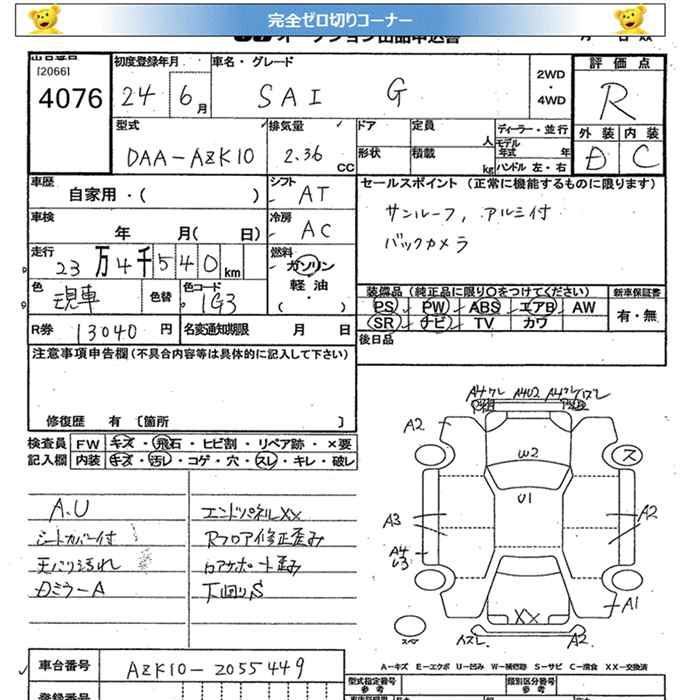 完全ゼロ切りコーナー
オークション出品申込書
出品番号
[2066]
4076
初度登録年月
24 6月
車名・グレード
SAI G
2WD
・
4WD
評価点
R
外装 内装
D C
型式
DAA-AZK10
排気量
2.36 CC
ドア 定員 人
形状 積載 kg
ディーラー・並行
モデル年式 年
ハンドル 左・右
車歴
自家用・( )
シフト
AT
セールスポイント (正常に機能するものに限ります)
サンルーフ, アルミ付
バックカメラ
車検
年 月( 日)
冷房
AC
走行
23万4千540km
燃料
ガソリン
軽油
( )
色
現車
色替
色コード
1G3
装備品 (純正品に限り〇をつけてください)
PS PW ABS エアB AW
SR ナビ TV カワ
新車保証書
有・無
R券 13040円
名変通知期限 月 日
後日品
注意事項申告欄(不具合内容等は具体的に記入して下さい)
修復歴 有 〔箇所 〕
検査員 FW キズ・飛石・ヒビ割・リペア跡・×要
記入欄 内装 キズ・汚れ・コゲ・穴・スレ・キレ・破レ
A.U
シートカバー付
天バリ汚れ
Dミラー A
エンドパネルXX
Rフロア修正歪み
ロアサポート歪み
下回りS
A4ワレ A4U2 A4ワレ
A2
W2
ス
U1
A3
A2
A4
U3
A1
XX
A2
車台番号
AZK10-2055449
A-キズ E-エクボ U-凹み W-補修跡 S-サビ C-腐食 XX-交換済
登録番号
型式指定番号
参考
類別区分番号
参考